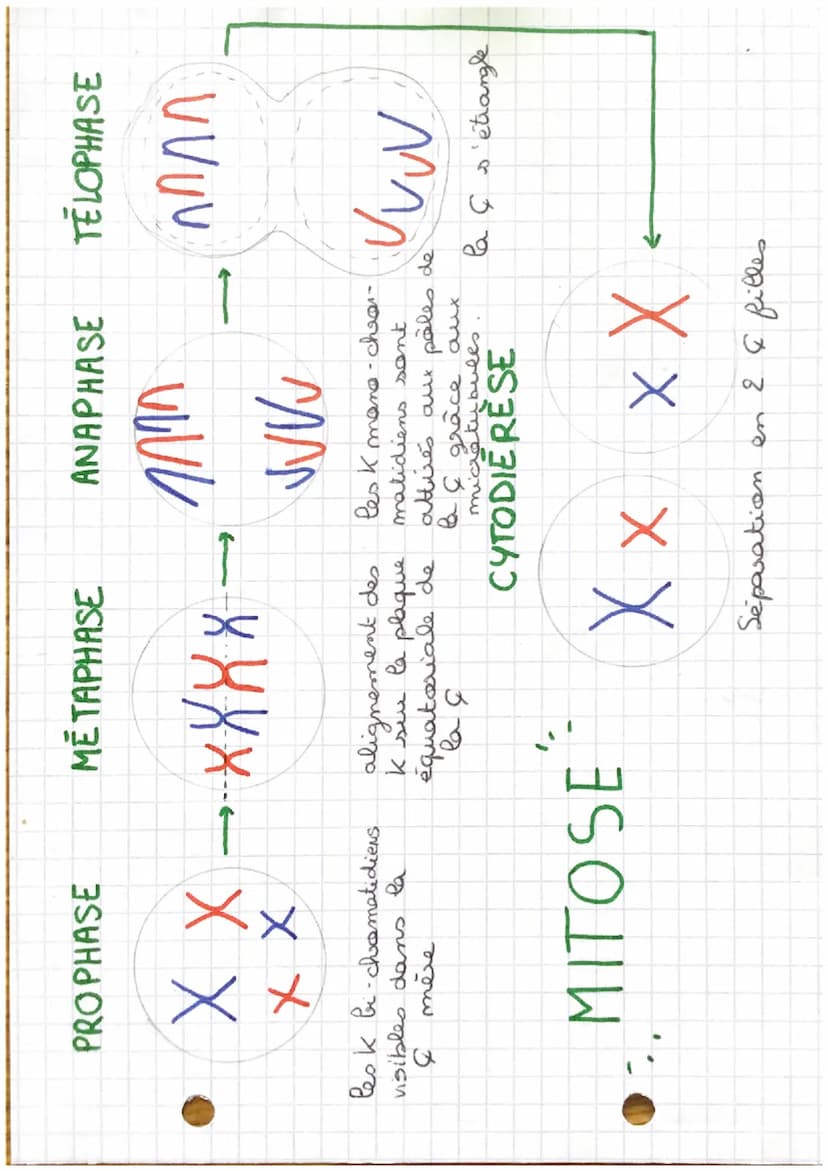 PROPHASE
MÉTAPHASE
ANAPHASE
TÉLOPHASE
les K bi-chromatidiens
visibles dans la
Ç mère
alignement des
K sur la plaque
équatoriale de
la Ç
les K mono-chro-
matidiens sont
attirés aux pôles de
la Ç grâce aux
microtubules.
la Ç s'étrangle
CYTODIÉRÈSE
Séparation en 2 Ç filles
MITOSE